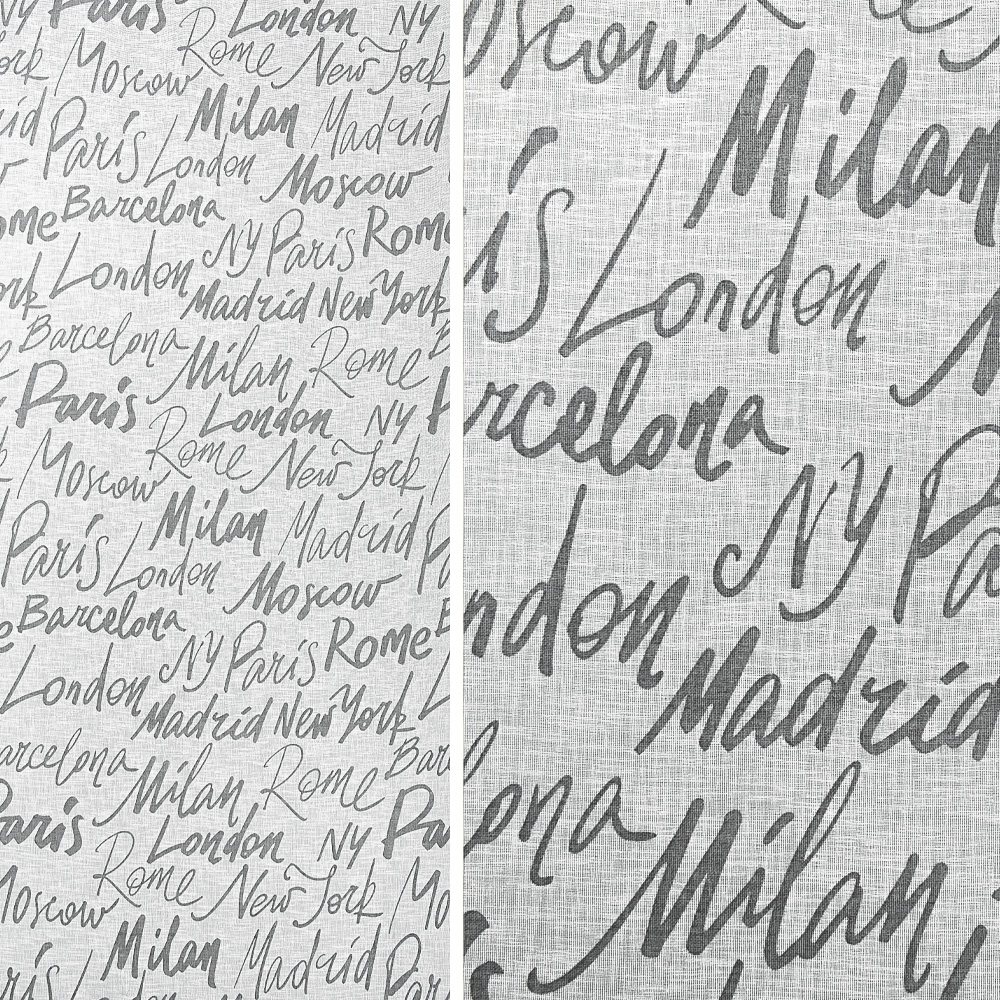 NY Paris London NY
York Moscow Rome New York
Madrid Paris Milan Madrid
London Moscow
Rome Barcelona NY Paris Rome
York London Madrid New York
Barcelona Milan Rome
Paris London NY
Moscow Rome New York
Paris Milan Madrid
London Moscow
Barcelona NY Paris Rome
London Madrid New York
Barcelona Milan Rome Bar
Paris London NY Pa
Moscow Rome New York Mo
Milan Madrid
oscow
Milan
is London
rcelona
NY Pa
ndon
Madrid
lona
Milan